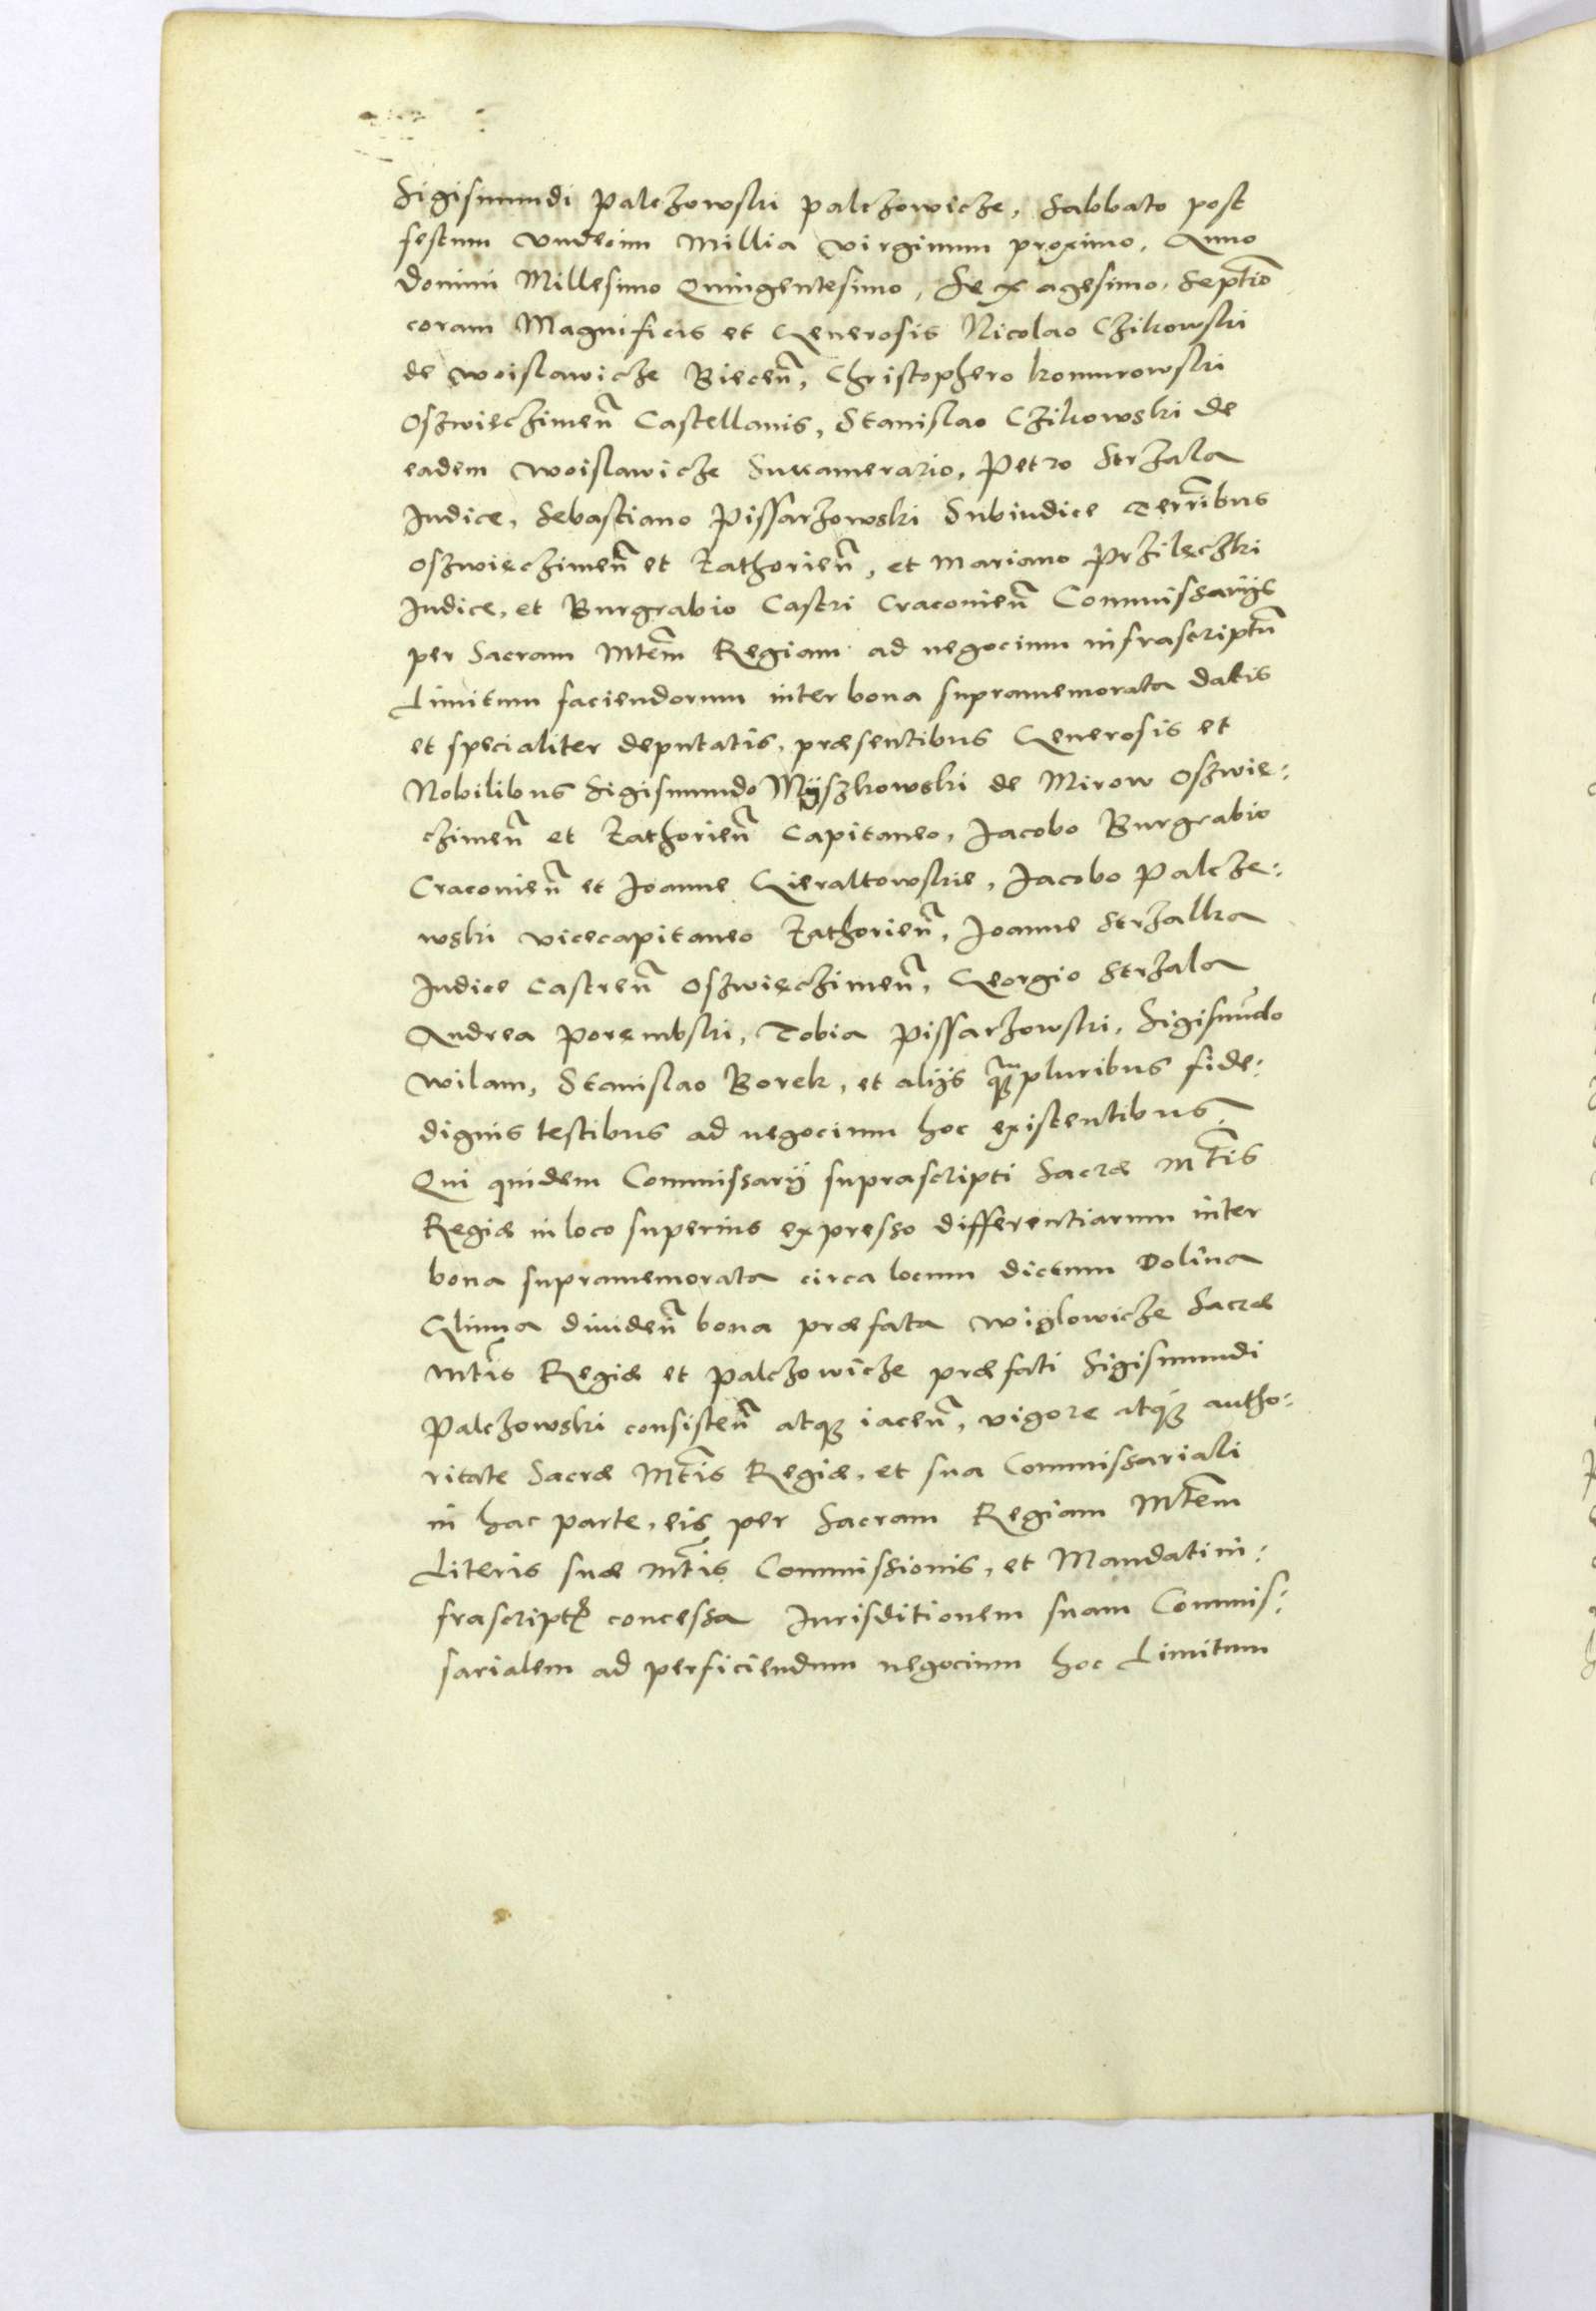 Sigismundi Palczowski Palczowicze, Sabbato post
festum Vndecim Millia Virginum proximo, Anno
domini Millesimo Quingentesimo, Sexagesimo, Septīo
coram Magnificis et Generosis Nicolao Czikowski
de Woislawicze Biecen̄, Christophero Komurowski
Oszwięczimen̄ Castellanis, Stanislao Czikowski de
eadem Woislawicze Succamerario, Petro Strzala
Iudice, Sebastiano Pissarzowski Subiudice Terrībus
Oszwięczimen̄ et Zathorien̄, et Mariano Przilęczki
Iudice, et Burgrabio Castri Cracouien̄ Commissarijs
per Sacram Mtem̄ Regiam ad negocium infrascriptū
Limitum faciendorum inter bona supramemorata datis
et specialiter deputatis, præsentibus Generosis et
Nobilibus Sigismundo Mÿszkowski de Mirow Oszwię:
czimen̄ et Zathorien̄ Capitaneo, Iacobo Burgrabio
Cracouien̄ et Joanne Gieraltowskie, Iacobo Palcze:
wski vicecapitaneo Zathorien̄, Joanne Strzalka
Iudice Castren̄ Oszwięczimen̄, Georgio Strzala
Andrea Porembski, Tobia Pissarzowski, Sigismūdo
Wilam, Stanislao Borek, et alijs q̄pluribus fide:
dignis testibus ad negocium hoc existentibus,
Qui quidem Commissarij suprascripti Sacræ Mtīs
Regiæ in loco superius expresso differentiarum inter
bona supramemorata circa locum dictum Dolina
Glinna diuiden̄ bona præfata Wiglowicze Sacræ
Mtīs Regiæ et Palczowicze præfati Sigismundi
Palczowski consisten̄ atqȝ iacen̄, vigore atqȝ autho:
ritate Sacræ Mtīs Regiæ, et sua Commissariali
in hac parte, eis per Sacram Regiam Mtem̄
Literis suæ Mtīs Commissionis, et Mandati in:
frascript concessa Iurisditionem suam Commis:
sarialem ad perficiendum negocium hoc Limitum